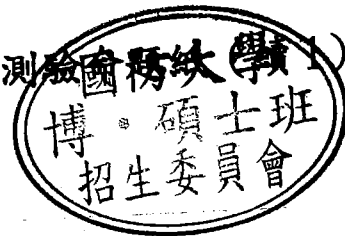 測驗 國 大學 1)
博・碩士班
招生委員會